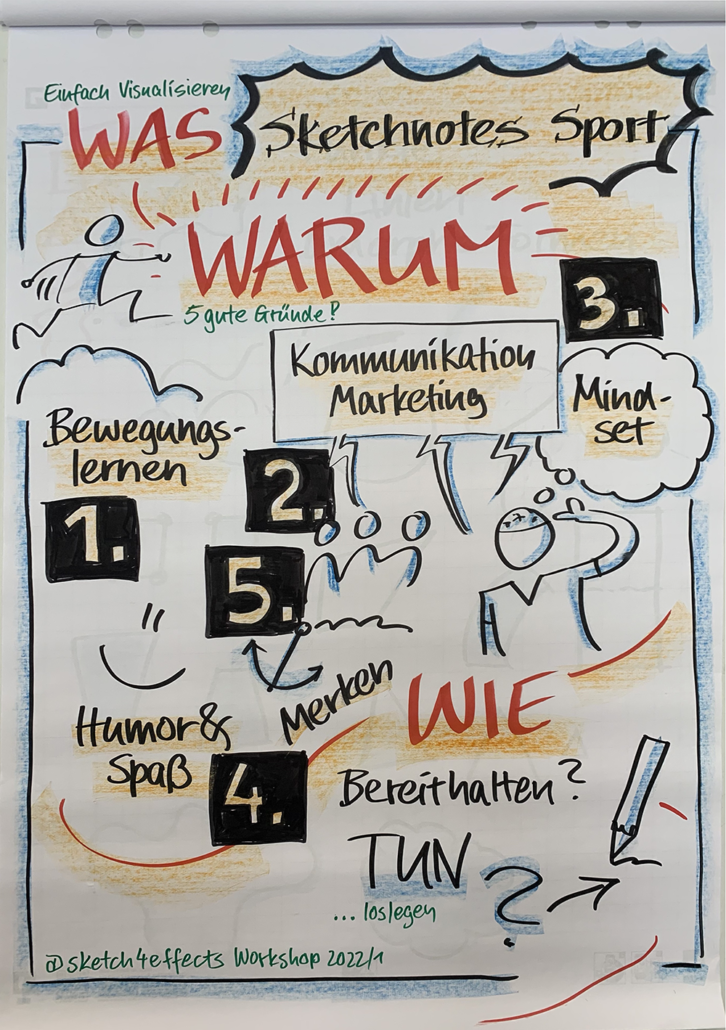 Einfach Visualisieren
WAS
Sketchnotes Sport
WARUM
5 gute Gründe?
Bewegungs-
lernen
1.
Kommunikation
Marketing
2.
3.
Mind-
set
5.
Merken
Humor &
Spaß
4.
WIE
Bereithalten?
TUN
?
... loslegen
@sketch4effects Workshop 2022/1